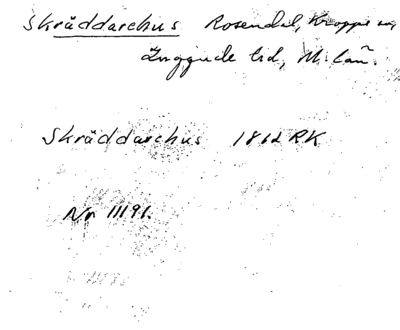 Skräddarehus Rosendal, Kropps sn,
Luggude hd, M. län.
Skräddarehus 1862 RK
Nr 11191.